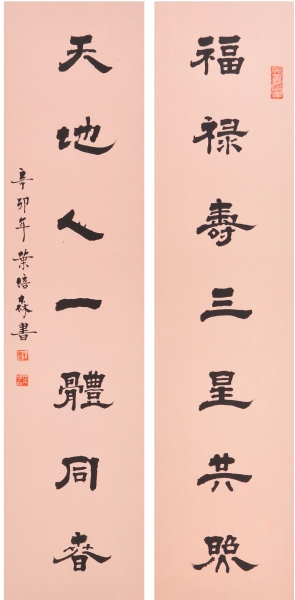 福禄壽三星共照
天地人一體同春
辛卯年葉培森書